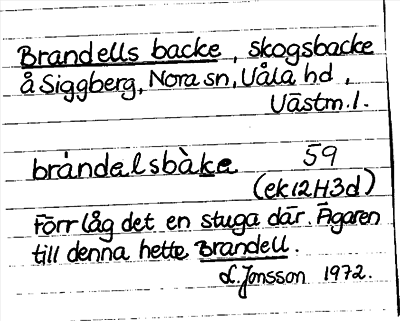 Brandells backe, skogsbacke
å Siggberg, Nora sn, Våla hd,
Västm.l.
brándelsbàke 59
(ek 12H3d)
Förr låg det en stuga där. Ägaren
till denna hette Brandell.
L. Jonsson 1972.